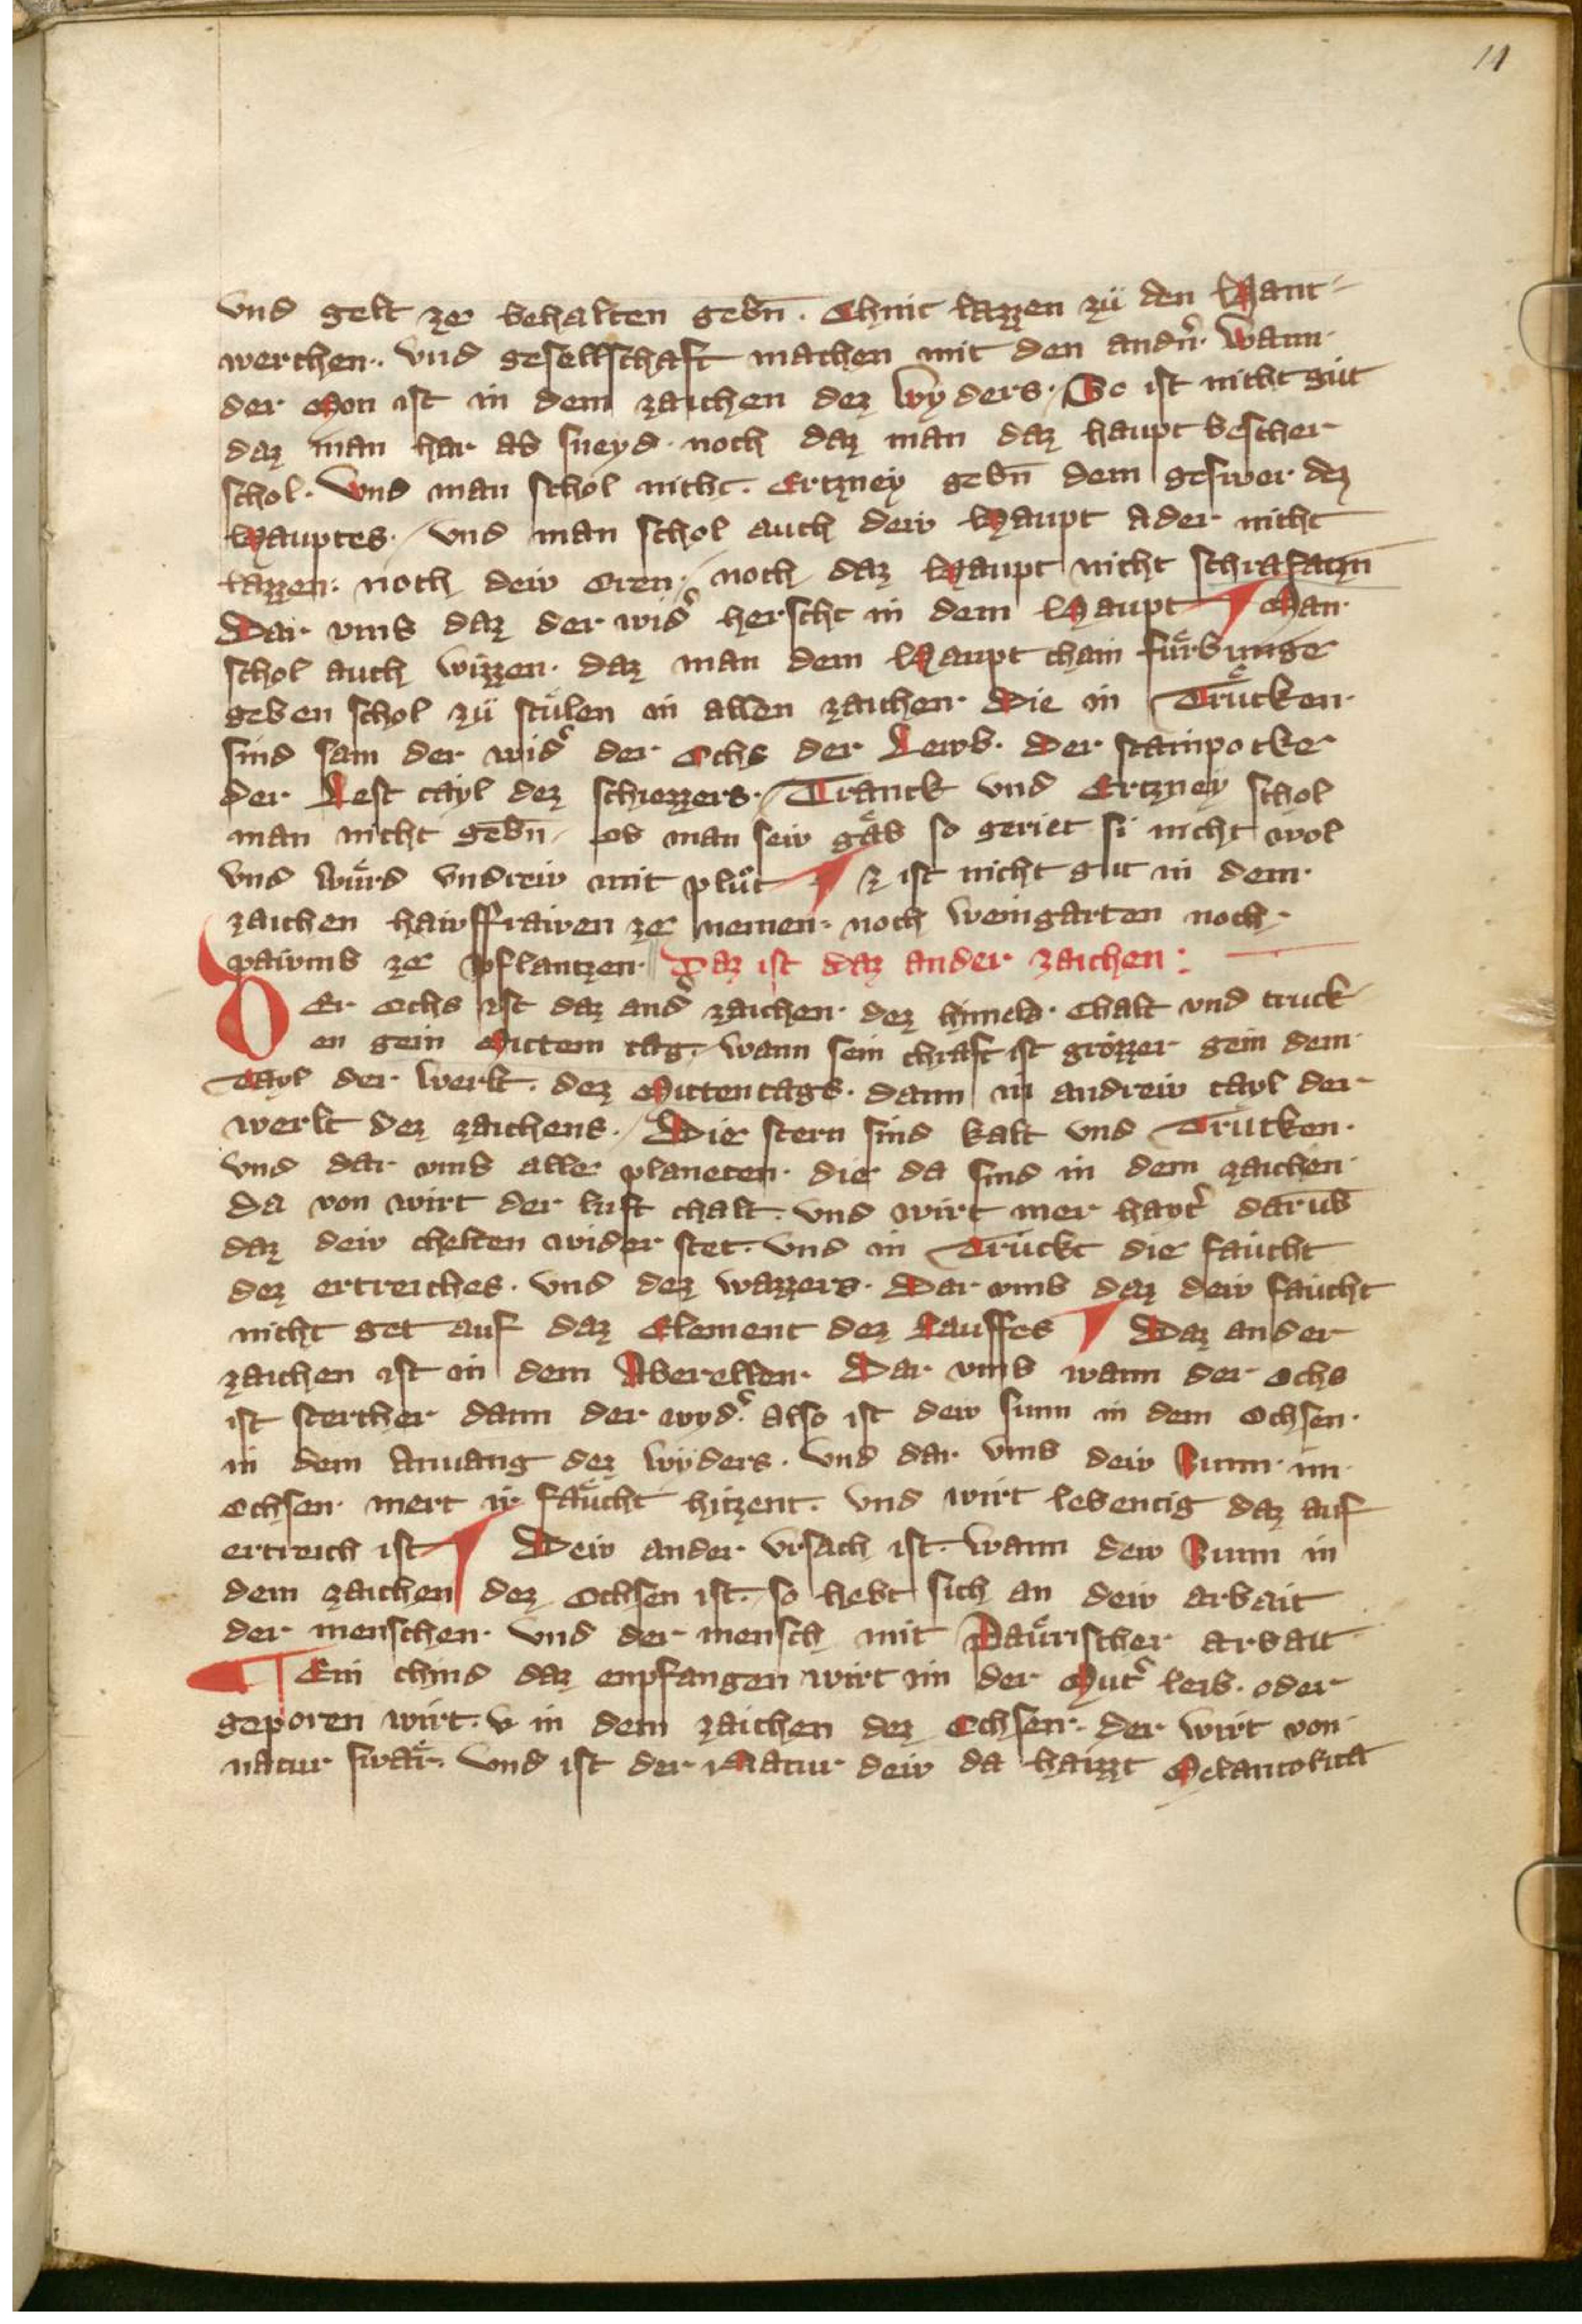 11
vnd gelt ze behalten gebn̄. Chnit lazzen zü den Hant
werchen. vnd gesellschaft machen mit den andn̉. Wann
der Mon ist in dem zaichen dez wyders. So ist nicht güt
daz man har ab sneyd. noch daz man daz haupt bescher
schol. Vnd man schol nicht. Ertzney gebn̄ dem geswer dez
Hauptes. vnd man schol auch dew Haupt Ader nicht
lazzen. noch dew Oren. noch daz Haupt nicht schrafatzn̄
Dar vmb daz der wid̉ herscht in dem Haupt ¶ Man
schol auch wizzen. daz man dem Haupt chain fürbunge
geben schol zü stülen in allen zaichen. Die in Trücken.
sind sam der wid̉ der Ochs der Lewb. Der stainpocke
der Lest tayl dez schiezzers. Tranck vnd Ertzney schol
man nicht gebn̄. ob man sew gäb so geriet si nicht wol
vnd würd vndrew mit plůt ¶ Ez ist nicht gut in dem
zaichen hawsfrawen ze nemen. noch weingarten noch
pawmb ze pflantzen. Daz ist daz ander zaichen:
DEr Ochs ist daz and̉ zaichen. dez hymels. Chalt vnd truck
en gein Mittem tag. wann sein chraft ist grözzer gein dem
Tayl der werlt. dez Mittentags. dann in andrew tayl der
werlt dez zaichens. Die stern sind kalt vnd Trücken.
vnd dar vmb alle planeten. die da sind in dem zaichen
da von wirt der luft chalt. vnd wirt mer hayt̉ darūb
daz dew chelten wider stet. vnd in Trückt die faücht
dez ertreiches. vnd dez wazzers. Dar vmb daz dew faücht
nicht get auf daz Element dez Lauffes ¶ Daz ander
zaichen ist in dem Aberellen. Dar vmb wann der Ochs
ist stercher dann der wyd̉. also ist dew sunn in dem Ochsen.
in dem Anuang dez wyders. vnd dar vmb dew Sunn im
Ochsen. mert ir faücht hitzent. vnd wirt lebentig daz auf
ertreich ist ¶ Dew ander vrsach ist. wann dew Sunn in
dem zaichen dez Ochsen ist. so hebt sich an dew arbait
der menschen. vnd der mensch mit Paürischer arbait
¶ Ein chind daz enpfangen wirt in der Mut̉ leib. oder
geporen wirt. v in dem zaichen dez Ochsen. der wirt von
natur swär. vnd ist der Natur dew da haizzt Melancolica